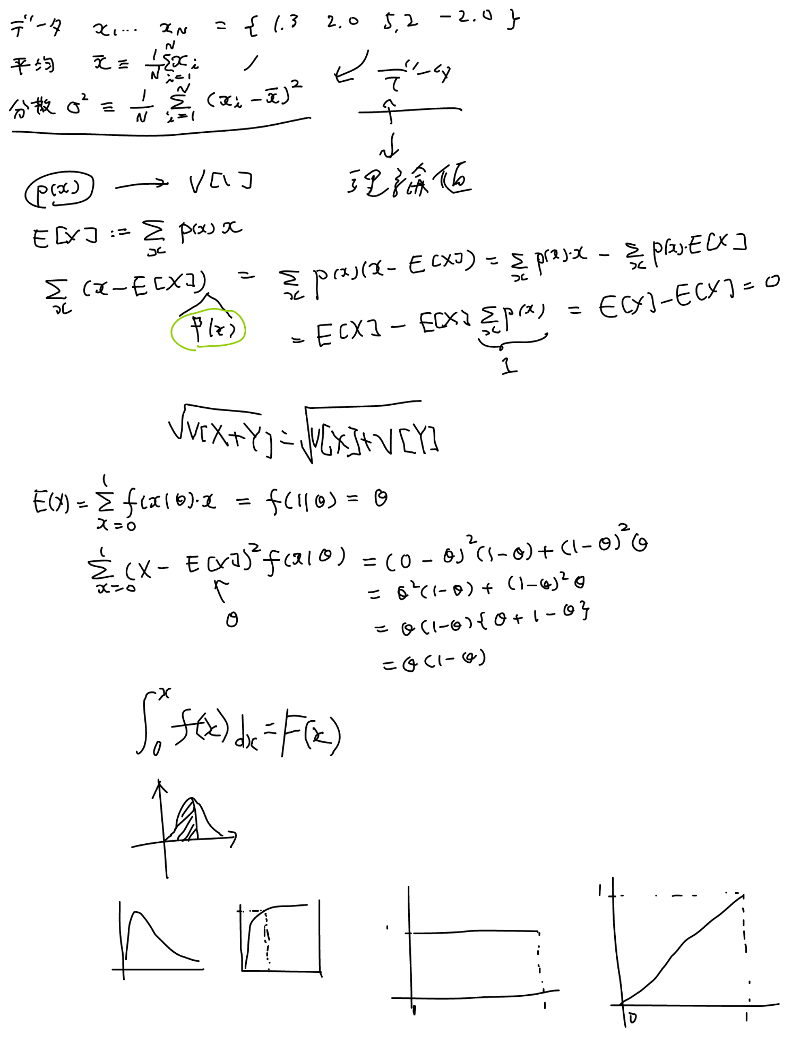 データ x₁... x_N = { 1.3 2.0 5.2 -2.0 }
平均 x̄ ≡ 1/N Σ_{i=1}^{N} x_i
分散 σ² ≡ 1/N Σ_{i=1}^{N} (x_i - x̄)²
データ
理論値
p(x) → V[ ]
E[X] := Σ_x p(x) x
Σ_x (x - E[X]) = Σ_x p(x)(x - E[X]) = Σ_x p(x)·x - Σ_x p(x)·E[X]
p(x)
= E[X] - E[X] Σ_x p(x) = E[X] - E[X] = 0
1
√V[X+Y] = √V[X]+V[Y]
E(X) = Σ_{x=0}^{1} f(x|θ)·x = f(1|θ) = θ
Σ_{x=0}^{1} (X - E[X])² f(x|θ) = (0 - θ)²(1-θ) + (1-θ)²θ
θ
= θ²(1-θ) + (1-θ)²θ
= θ(1-θ){θ + 1 - θ}
= θ(1-θ)
∫_0^x f(x) dx = F(x)
1
1
0
1